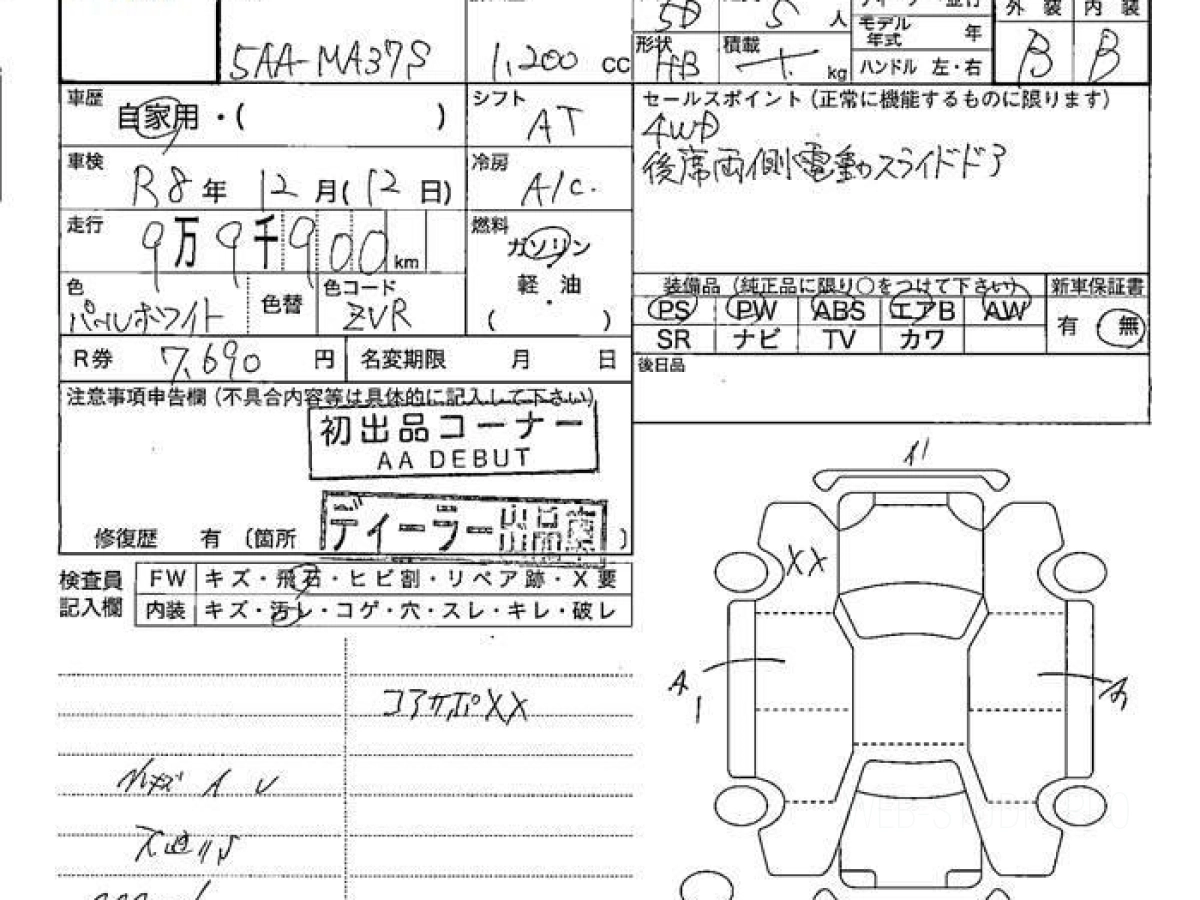 5D 5 人
モデル年式 年
外装 内装
5AA-MA37S
1,200 cc
形状 HB
積載 kg
ハンドル 左・右
B B
車歴 自家用・( )
シフト AT
セールスポイント(正常に機能するものに限ります)
4WD
後席両側電動スライドドア
車検 R8年 12月(12日)
冷房 A/C.
走行 9万9千900km
燃料 ガソリン
軽・油
( )
色 パールホワイト
色替
色コード ZVR
装備品(純正品に限り○をつけて下さい)
新車保証書
PS PW ABS エアB AW
有・無
SR ナビ TV カワ
R券 7,690円
名変期限 月 日
後日品
注意事項申告欄(不具合内容等は具体的に記入して下さい)
初出品コーナー
AA DEBUT
ディーラー出品車
修復歴 有 (箇所 )
検査員記入欄
FW キズ・飛石・ヒビ割・リペア跡・X要
内装 キズ・汚レ・コゲ・穴・スレ・キレ・破レ
XX
コアサポXX
A1
A